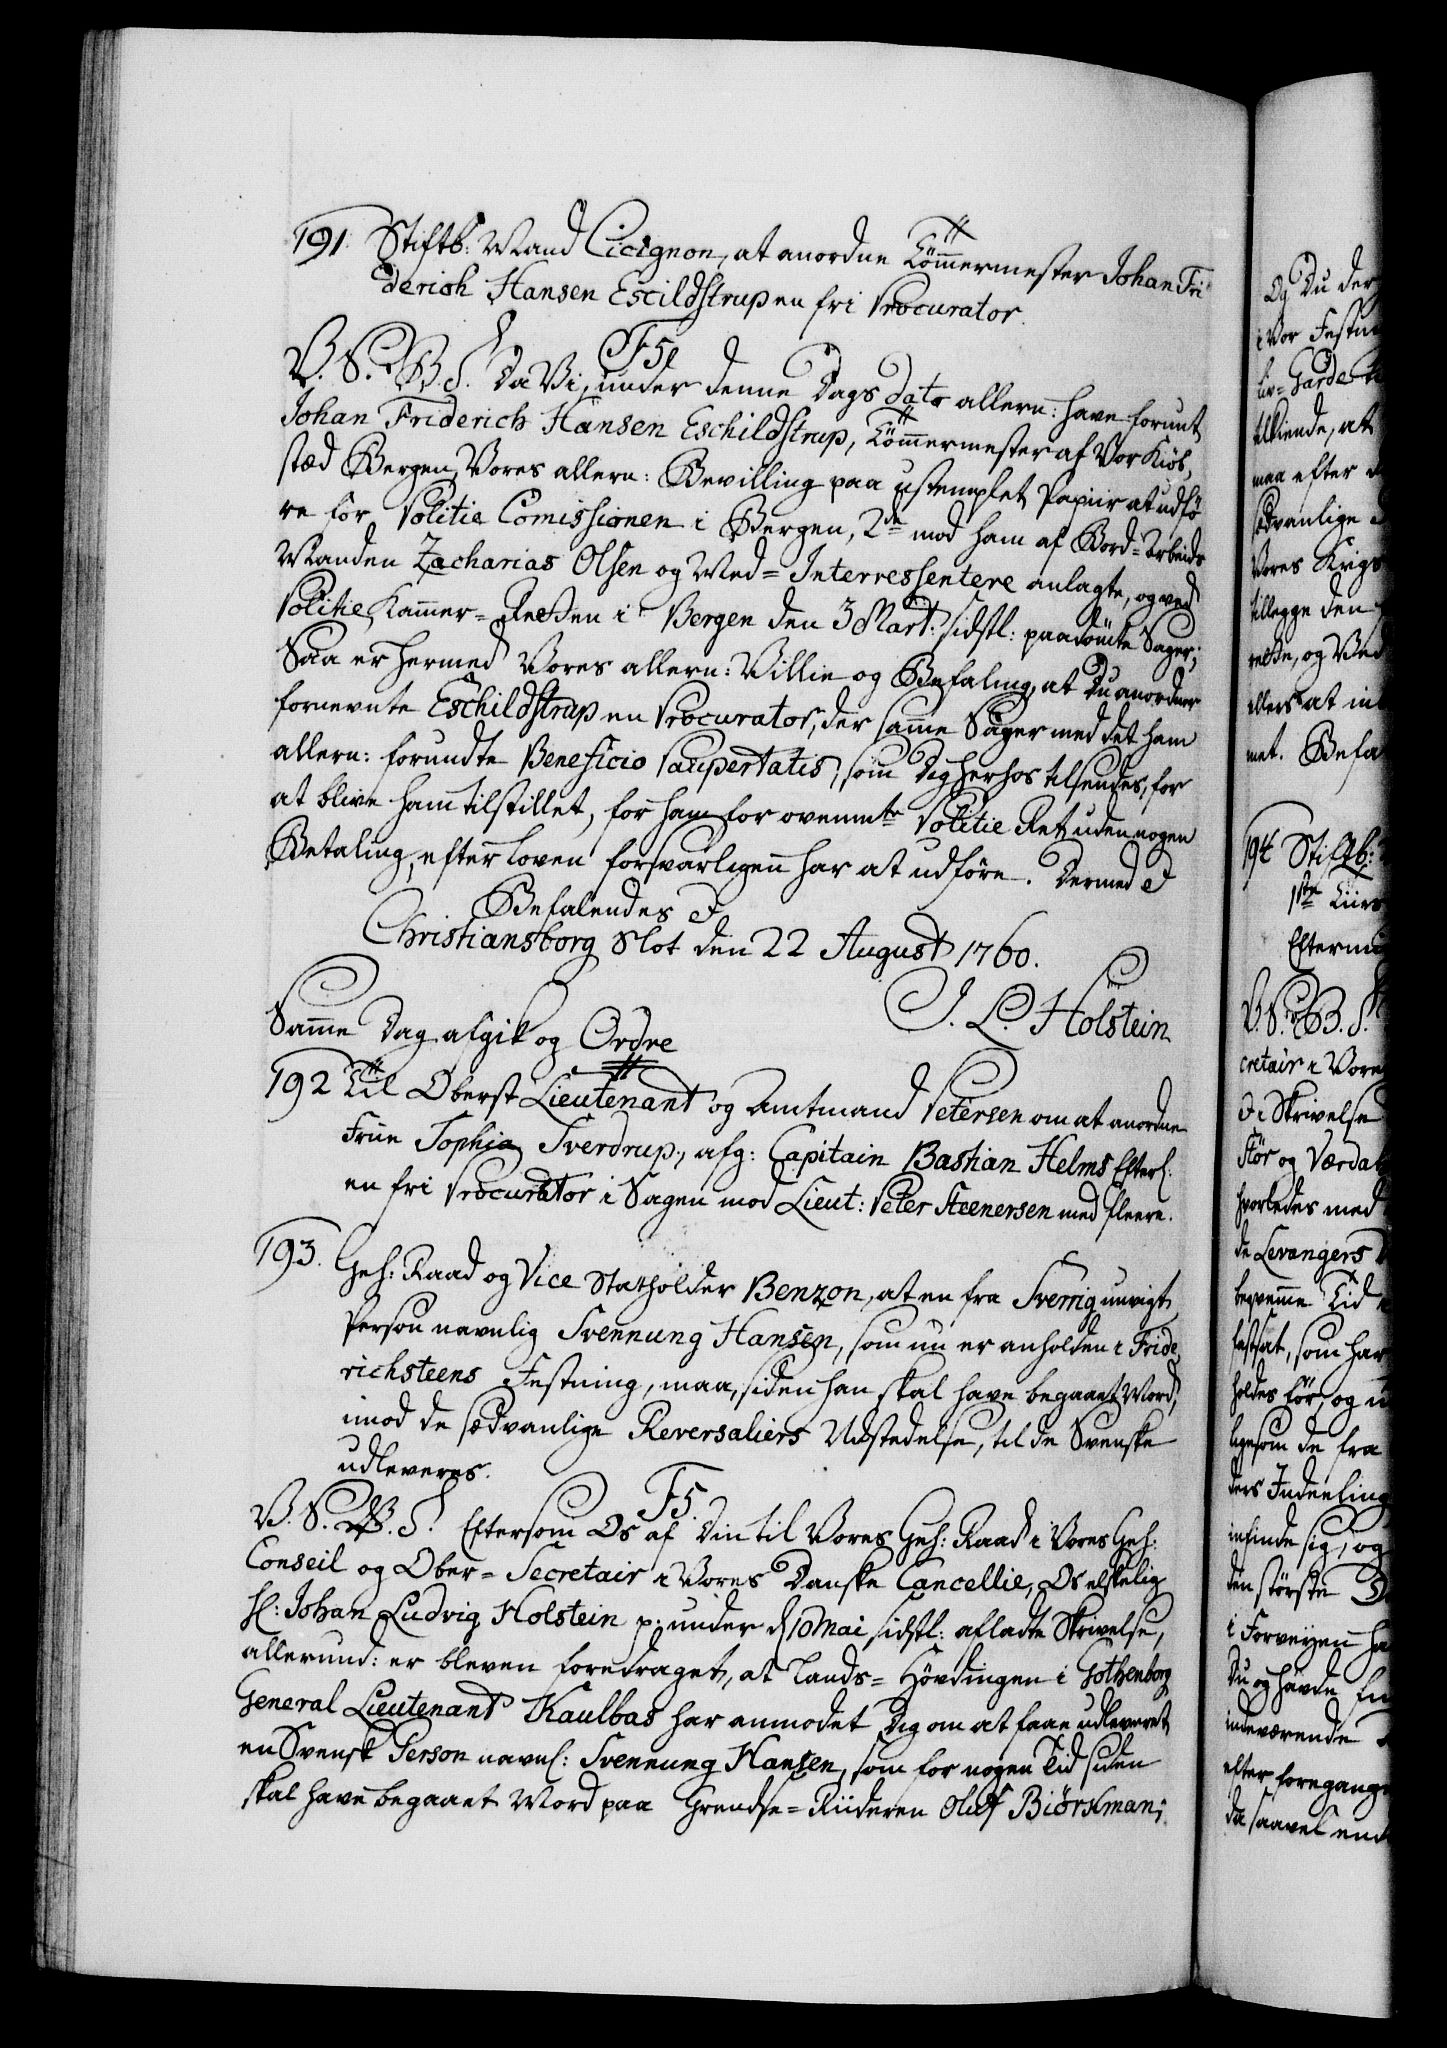 191. Stiftb: Mand Cicignon, at anordne Tømmermester Johan Fri-
derich Hansen Escildstrup en fri Procurator.
F5.
V. S. G. B. T. Da Vi, under denne Dags Dato allern: have forunt
Johan Friderich Hansen Eschildstrup, Tømmermester af Vor Kiøb-
stæd Bergen, Vores allern: Bevilling paa ustemplet Papiir at udfø-
re for Politie Comissionen i Bergen, 2de mod ham af Bord-Arbeids
Manden Zacharias Olsen og Med-Interressentere anlagte, og ved
Politie Kammer-Retten i Bergen den 3 Mart: sidstl: paadømte Sager;
Saa er hermed Vores allern: Villie og Befaling, at Du anordner
fornevnte Eschildstrup en Procurator, der samme Sager med det ham
allern: forundte Beneficio Paupertatis, som Dig herhos tilsendes, for
at blive ham tilstillet, for ham for ovennte Politie Ret uden nogen
Betaling, efter Loven forsvarligen har at udføre. Dermed
Befalendes
Christiansborg Slot den 22 August 1760.
J. L. Holstein
Samme Dag afgik og Ordre
192 Til Oberst Lieutenant og Amtmand Petersen om at anordne
Frue Sophia Sverdrup, afg: Capitain Bastian Helms Efterl:
en fri Procurator i Sagen mod Lieut: Peter Steenersen med fleere.
193. Geh: Raad og Vice Statholder Benzon, at en fra Sverrig unvigt
Person navnlig Svennung Hansen, som nu er anholden i Fride-
richsteens Festning, maa, siden han skal have begaaet Mord,
imod de sædvanlige Reversaliers Udstedelse, til de Svenske
udleveres.
F5.
V. S. G. B. T. Eftersom Os af Din til Vores Geh: Raad i Vores Geh:
Conseil og Ober-Secretair i Vores Danske Cancellie, Os elskelig
Hr: Johan Ludvig Holstein p: under d 10 Mai sidstl: afladte Skrivelse,
allerund: er bleven foredraget, at Lands-Høvdingen i Gothenborg
General Lieutenant Kaulbas har anmodet Dig om at faae udleveret
en Svensk Person navnl: Svennung Hansen, som for nogen Tid siden
skal have begaaet Mord paa Grendse-Riideren Oluf Biørkman;
Og Du der
i Vor Festn
liv-Garde
tilkiende, at
maa efter
sædvanlige
Vores Krigs
tillegge den
rette, og Ved
ellers at in
met. Befa
194 Stiftb:
1ste
Eftermi
V. S. G. B. T.
cretair i Vore
Skrivelse
Stør og Værdal
hvorledes med
de Levangers
beqvemme Tid
fastsat, som har
holdes før, og
ligesom de fra
ders Indeeling
infinde sig, og
den største
i Forveyen ha
Du og havde
indeværende
efter foregang
da saavel end